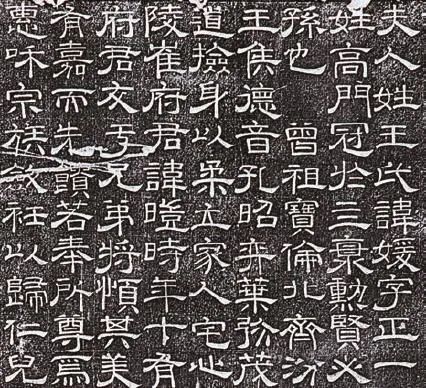 夫人姓王氏諱媛字正一
姓高門冠於三勳賢必
孫也 曾祖寶倫北齊汾
王雋德音孔昭弈葉弥茂
道撿身以柔立家人宅心
陵崔府君諱暟時年十有
府君友于兄弟將慎其美
有嘉而先若奉所尊爲
惠咊宗族斂衽以歸仁兒